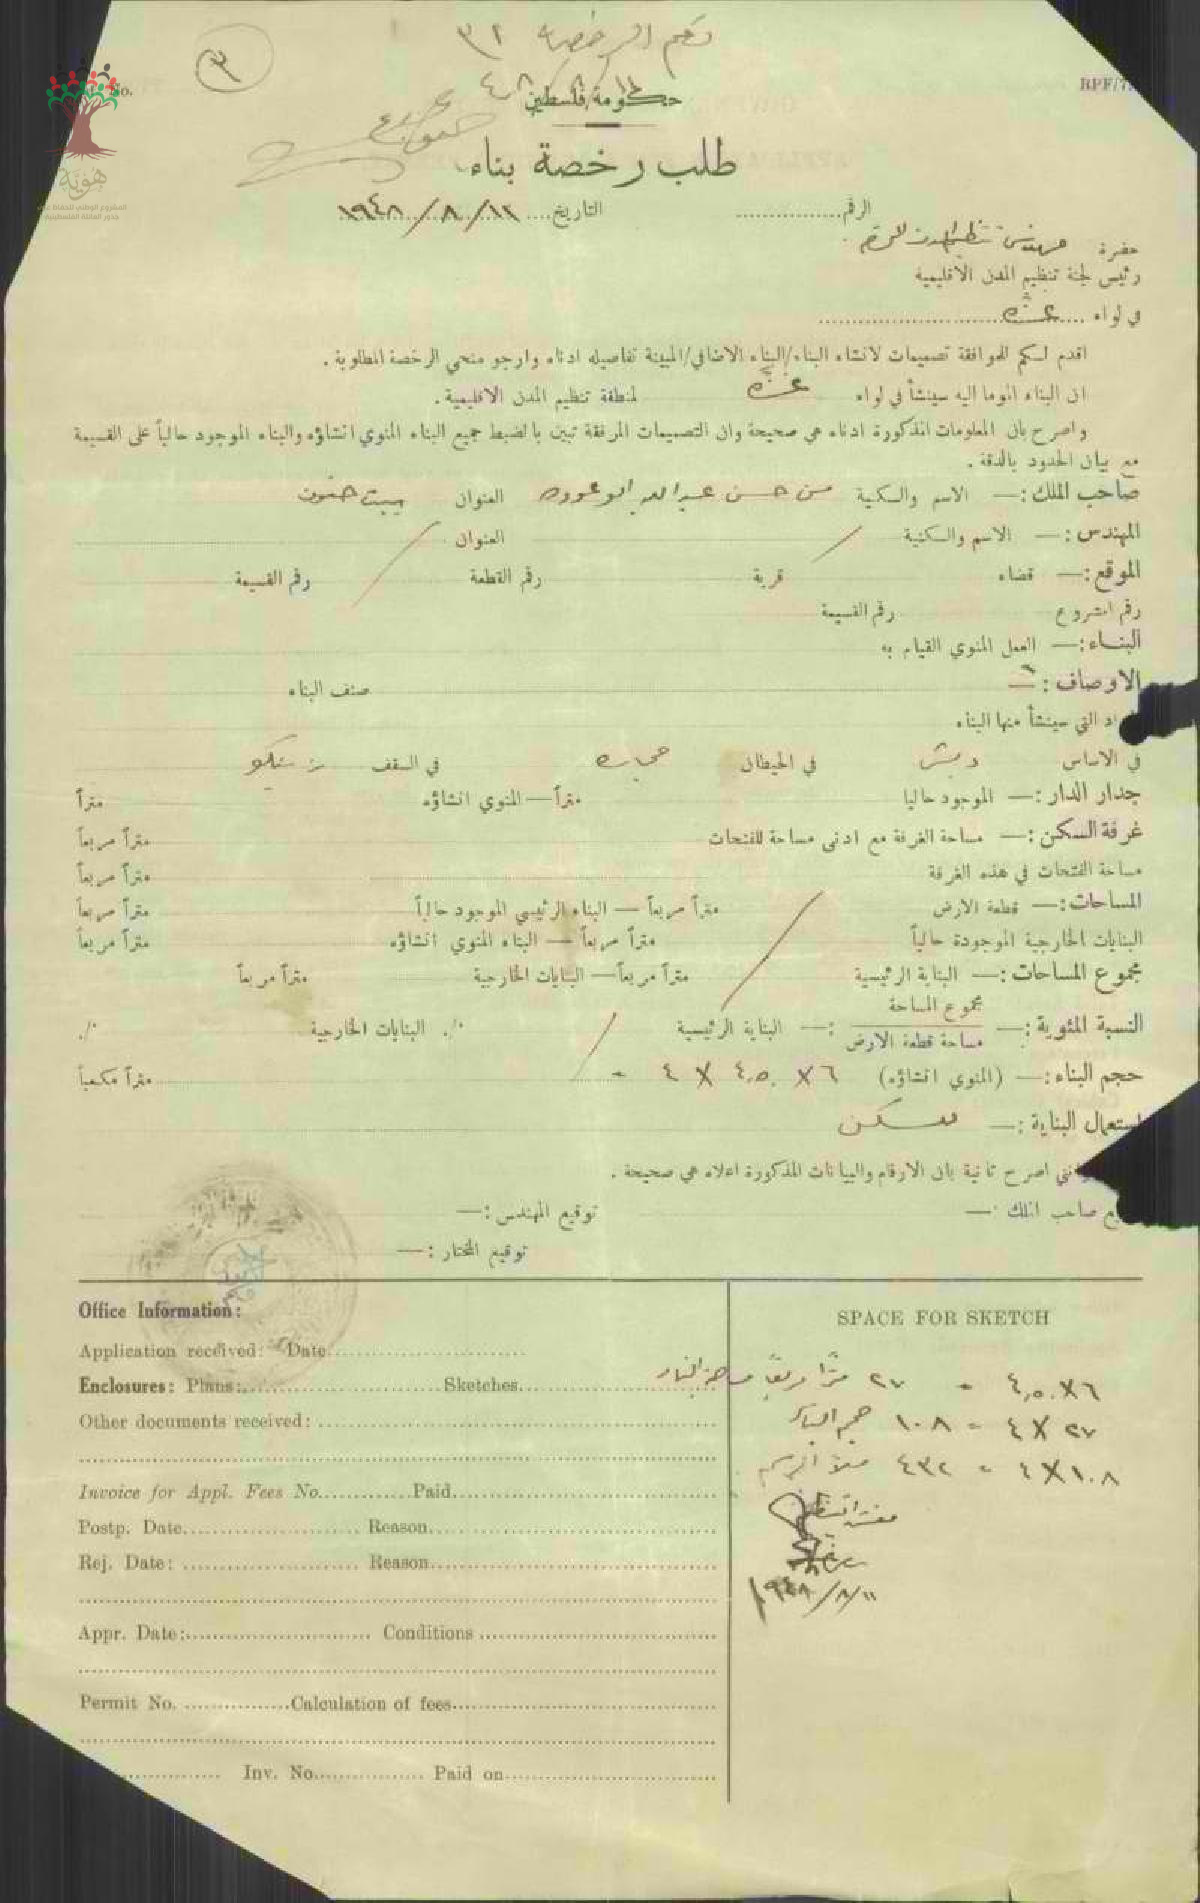 رقم الرخصة ٣٢
٣
No.
BPF/7
حكومة فلسطين
طلب رخصة بناء
الرقم ................ التاريخ .... ١٢/٨/١٩٤٨
حضرة مهندس تنظيم المدن المحترم
رئيس لجنة تنظيم المدن الاقليمية
في لواء .... غزة ....
اقدم لكم للموافقة تصميمات لانشاء البناء/البناء الاضافي/المبينة تفاصيله ادناه وارجو منحي الرخصة المطلوبة .
ان البناء الموما اليه سينشأ في لواء غزة لمنطقة تنظيم المدن الاقليمية .
واصرح بان المعلومات المذكورة ادناه هي صحيحة وان التصميمات المرفقة تبين بالضبط جميع البناء المنوي انشاؤه والبناء الموجود حالياً على القسيمة
مع بيان الحدود بالدقة .
صاحب الملك :— الاسم والكنية حسن عبد الله ابو عوده العنوان بيت حنون
المهندس :— الاسم والكنية العنوان
الموقع :— قضاء قرية رقم القطعة رقم القسيمة
رقم المشروع رقم القسيمة
البناء :— العمل المنوي القيام به
الاوصاف :— صنف البناء
التي سينشأ منها البناء
في الاساس دبش في الحيطان حجاره في السقف زينكو
جدار الدار :— الموجود حاليا متراً — المنوي انشاؤه متراً
غرفة السكن :— مساحة الغرفة مع ادنى مساحة للفتحات متراً مربعاً
مساحة الفتحات في هذه الغرفة متراً مربعاً
المساحات :— قطعة الارض متراً مربعاً — البناء الرئيسي الموجود حالياً متراً مربعاً
البنايات الخارجية الموجودة حالياً متراً مربعاً — البناء المنوي انشاؤه متراً مربعاً
مجموع المساحات :— البناية الرئيسية متراً مربعاً — البنايات الخارجية متراً مربعاً
النسبة المئوية :— مجموع المساحة / مساحة قطعة الارض :— البناية الرئيسية ./. البنايات الخارجية ./.
حجم البناء :— (المنوي انشاؤه) ٦ X ٤٫٥٠ X ٤ = متراً مكعباً
استعمال البناية :— مسكن
انني اصرح ثانية بان الارقام والبيانات المذكورة اعلاه هي صحيحة .
صاحب الملك :— توقيع المهندس :—
توقيع المختار :—
Office Information:
Application received: Date
Enclosures: Plans: Sketches
Other documents received:
Invoice for Appl. Fees No. Paid
Postp. Date Reason
Rej. Date: Reason
Appr. Date: Conditions
Permit No. Calculation of fees
Inv. No. Paid on
SPACE FOR SKETCH
٦ X ٤٫٥٠ = ٢٧ مترا مربعا مساحة البناء
٢٧ X ٤ = ١٠٨ حجم البناء
١٠٨ X ٤ = ٤٣٢ الرسم
مفتش التنظيم
١١/٨/١٩٤٨
هوية